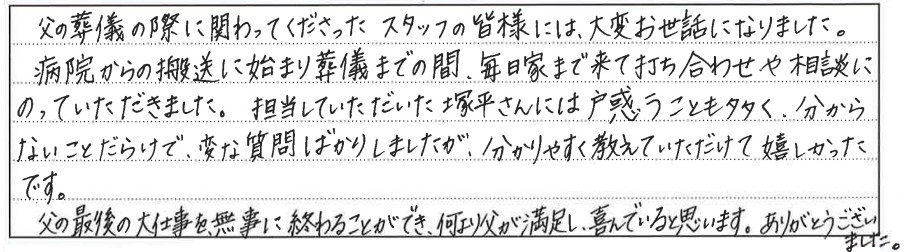 父の葬儀の際に関わってくださった スタッフの皆様には、大変お世話になりました。
病院からの搬送に始まり葬儀までの間、毎日家まで来て打ち合わせや相談に
のっていただきました。 担当していただいた塚平さんには戸惑うことも多く、分から
ないことだらけで、変な質問ばかりしましたが、分かりやすく教えていただけて嬉しかった
です。
父の最後の大仕事を、無事に終わることができ、何より父が満足し、喜んでいると思います。ありがとうござい
ました。